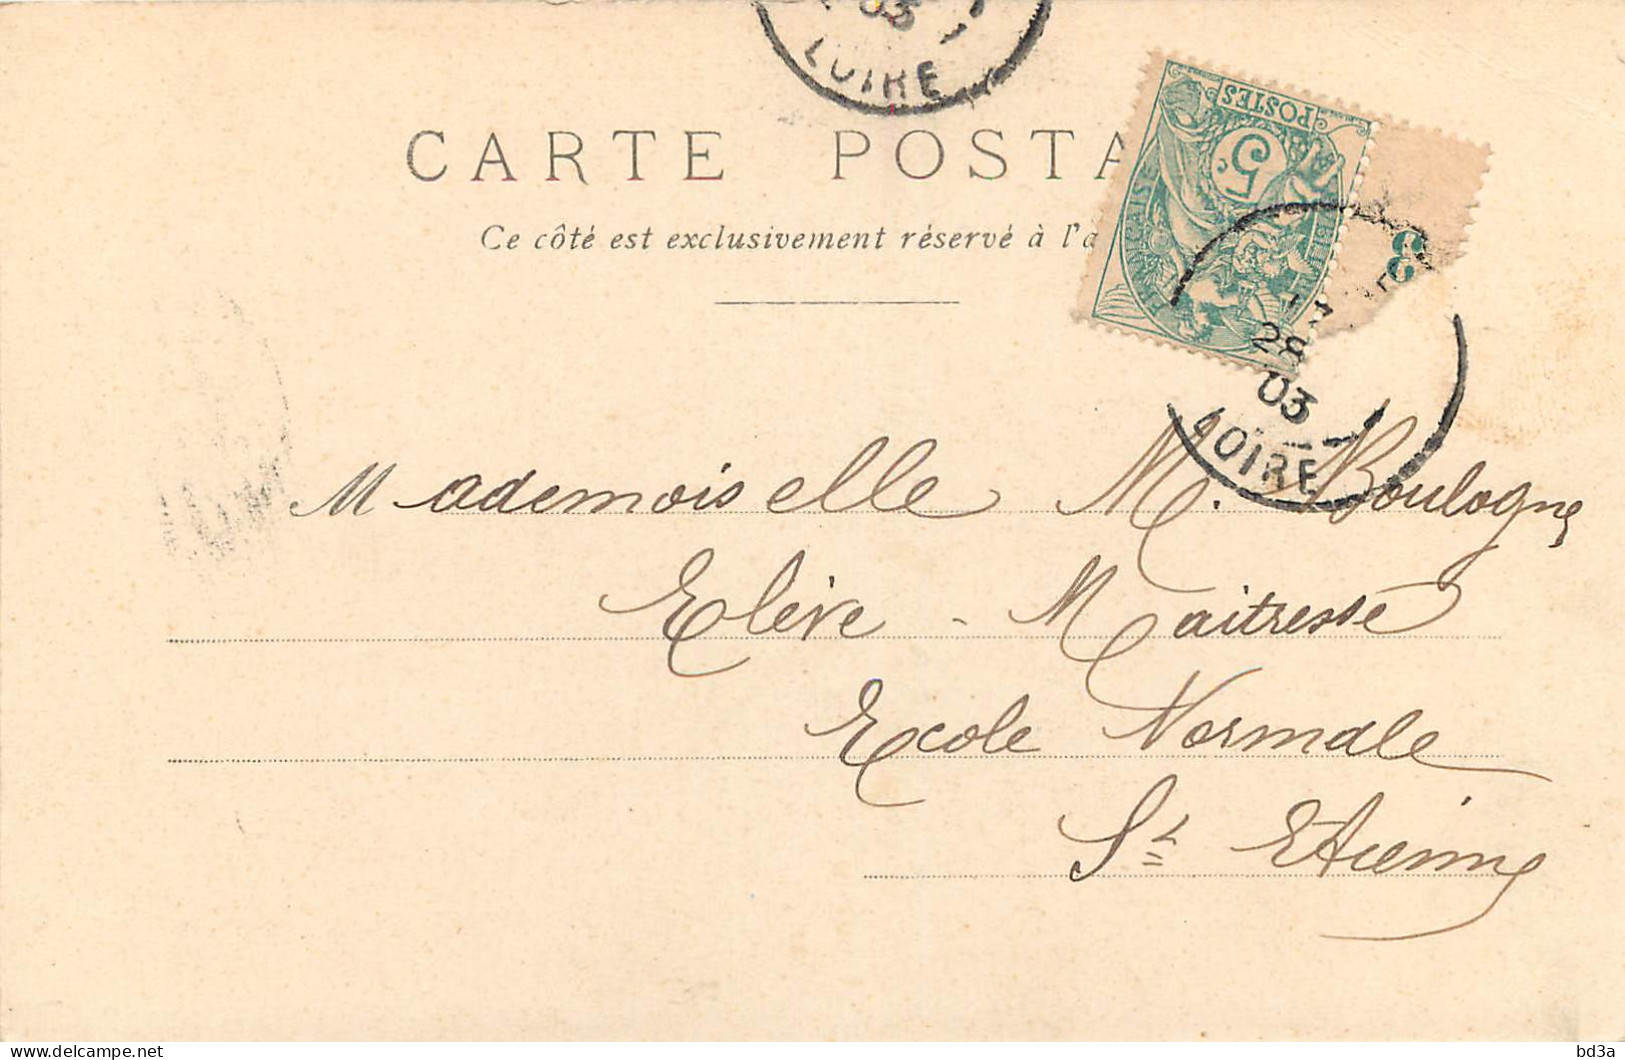 03
LOIRE
CARTE POSTA
Ce côté est exclusivement réservé à l'a
POSTES
5
3
28
03
LOIRE
Mademoiselle M. Boulogne
Elève - Maitresse
Ecole Normale
St Etienne
bd3a